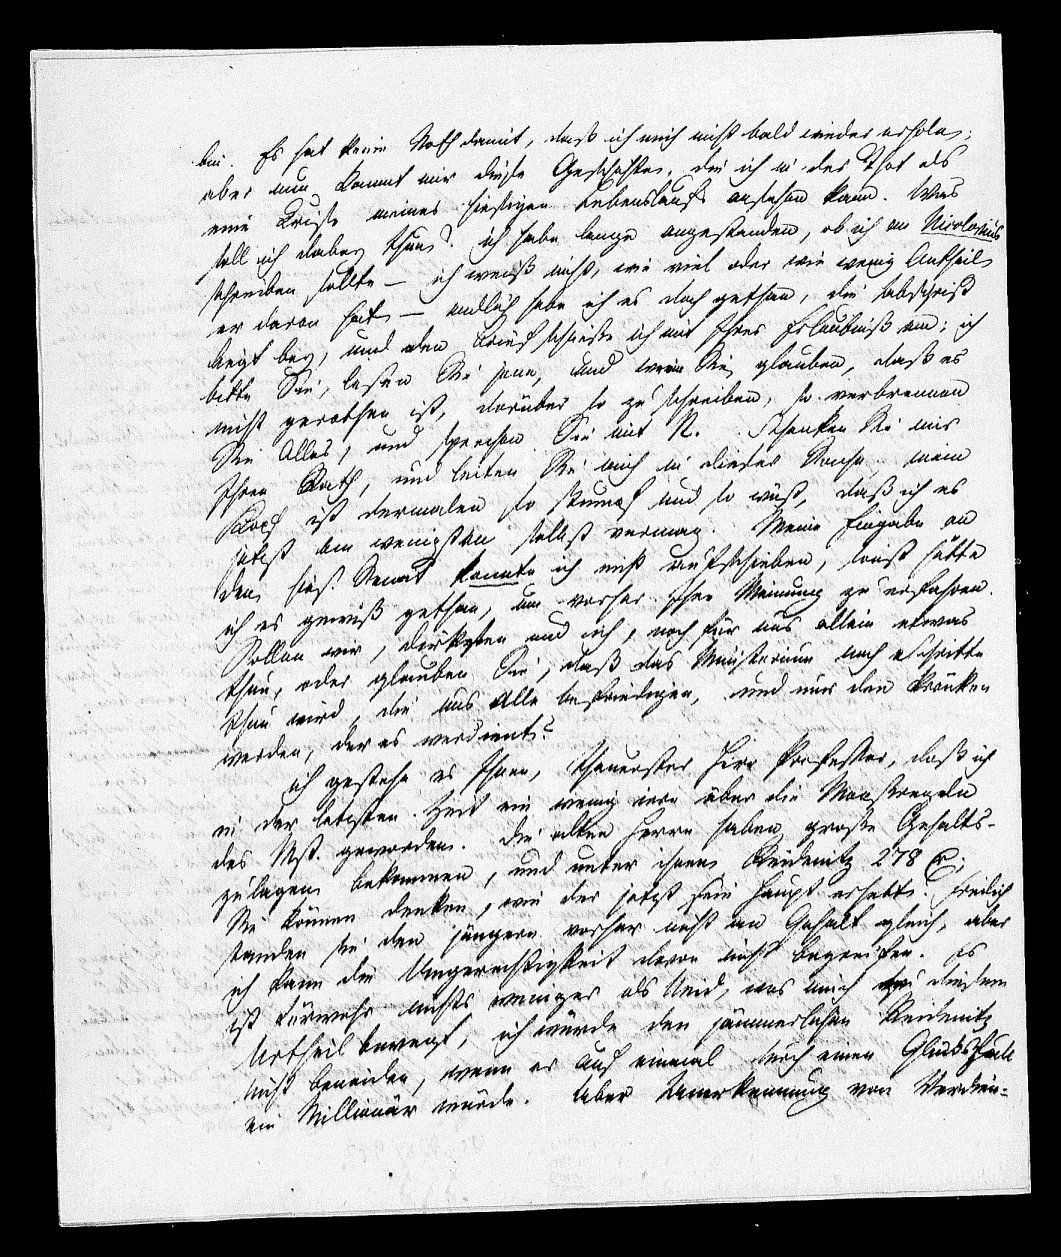 bin. Es hat keine Noth damit, daß ich mich nicht bald wieder erhole;
aber nun kommt mir diese Geschichte, die ich in der That als
eine Crise meines hiesigen Lebenslaufs ansehen kann. Was
soll ich dabey thun? ich habe lange angestanden, ob ich an Nicolovius
schreiben sollte – ich weiß nicht, wie viel oder wie wenig Antheil
er daran hat – endlich habe ich es doch gethan, die Abschrift
liegt bey, und den Brief schließe ich mit Ihrer Erlaubniß an; ich
bitte Sie, lesen Sie jene, und wenn Sie glauben, daß es
nicht gerathen ist, darüber so zu schreiben, so verbrennen
Sie Alles, und sprechen Sie mit N. Schenken Sie mir
Ihren Rath, und leiten Sie mich in dieser Sache mein
Kopf ist dermalen so stumpf und so wüst, daß ich es
jetzt am wenigsten selbst vermag. Meine Eingabe an
den hies. Senat konnte ich nicht aufschieben, sonst hätte
ich es gewiß gethan, um vorher Ihre Meinung zu erfahren.
Sollen wir, Dirksen und ich, noch für uns allein etwas
thun, oder glauben Sie, daß das Ministerium noch Schritte
thun wird, die uns Alle befriedigen, und nur den kränken
werden, der es verdient?
ich gestehe es Ihnen, theuerster Herr Professor, daß ich
in der letzten Zeit ein wenig irre über die Maasregeln
des Mst. geworden. Die alten Herrn haben große Gehalts-
zulagen bekommen, und unter ihnen Reidenitz 278
Sie können denken, wie der jetzt sein Haupt erhebt. Freilich
standen sie den jüngern vorher nicht an Gehalt gleich, aber
ich kann die Ungerechtigkeit davon nicht begreifen. Es
ist fürwahr nichts weniger als Neid, was mich zu diesem
Urtheil bewegt, ich würde den jämmerlichen Reidenitz
nicht beneiden, wenn er auf einmal durch einen Glücksfall
ein Millionär würde. Aber Anerkennung von Verdien-